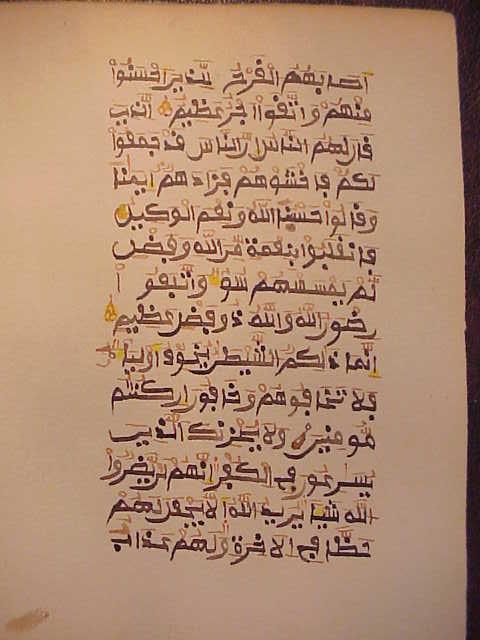 اصابهم القرح للذين احسنوا
منهم واتقوا اجر عظيم الذين
قال لهم الناس ان الناس قد جمعوا
لكم فاخشوهم فزادهم ايمنا
وقالوا حسبنا الله ونعم الوكيل
فانقلبوا بنعمة من الله وفضل
لم يمسسهم سوء واتبعوا
رضون الله والله ذو فضل عظيم
انما ذلكم الشيطن يخوف اولياءه
فلا تخافوهم وخافون ان كنتم
مومنين ولا يحزنك الذين
يسرعون في الكفر انهم لن يضروا
الله شيا يريد الله الا يجعل لهم
حظا في الاخرة ولهم عذاب